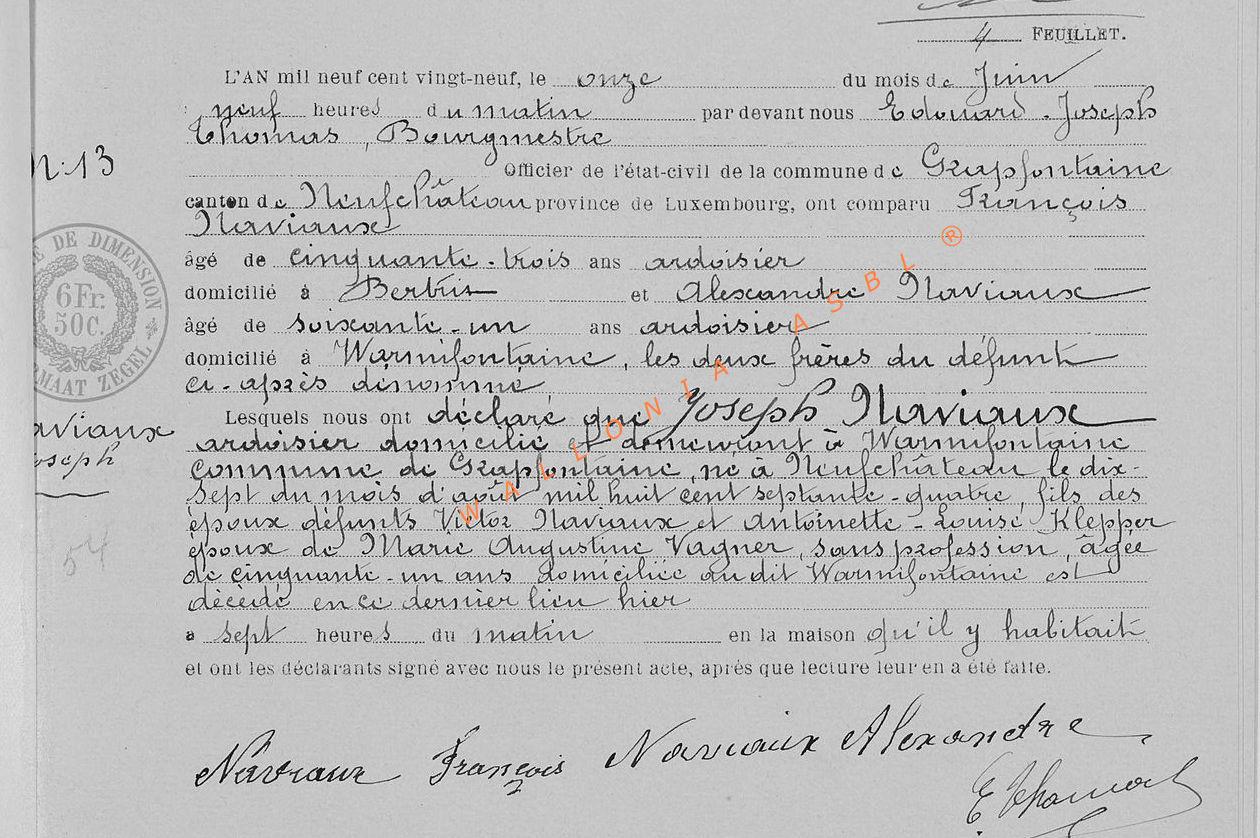 4 FEUILLET.
L'AN mil neuf cent vingt-neuf, le onze du mois de Juin
neuf heures du matin par devant nous Edouard - Joseph
Thomas, Bourgmestre
N: 13
Officier de l'état-civil de la commune de Grapfontaine
canton de Neufchâteau province de Luxembourg, ont comparu François
Naviaux
âgé de cinquante-trois ans ardoisier
domicilié à Bertrix et Alexandre Naviaux
âgé de soixante-un ans ardoisier
domicilié à Warmifontaine, les deux frères du défunt
ci-après dénommé
Lesquels nous ont déclaré que Joseph Naviaux
ardoisier domicilié et demeurant à Warmifontaine
commune de Grapfontaine, né à Neufchâteau le dix-
sept du mois d'août mil huit cent septante-quatre, fils des
époux défunts Victor Naviaux et Antoinette-Louise Klepper
époux de Marie Augustine Vagner, sans profession, âgée
de cinquante-un ans domiciliée audit Warmifontaine est
décédé en ce dernier lieu hier
à sept heures du matin en la maison qu'il y habitait
et ont les déclarants signé avec nous le présent acte, après que lecture leur en a été faite.
Naviaux François Naviaux Alexandre
E Thomas
aviaux
oseph
54
DE DIMENSION
6 Fr.
50C.
RMAAT ZEGEL
WALLONIA ASBL ®